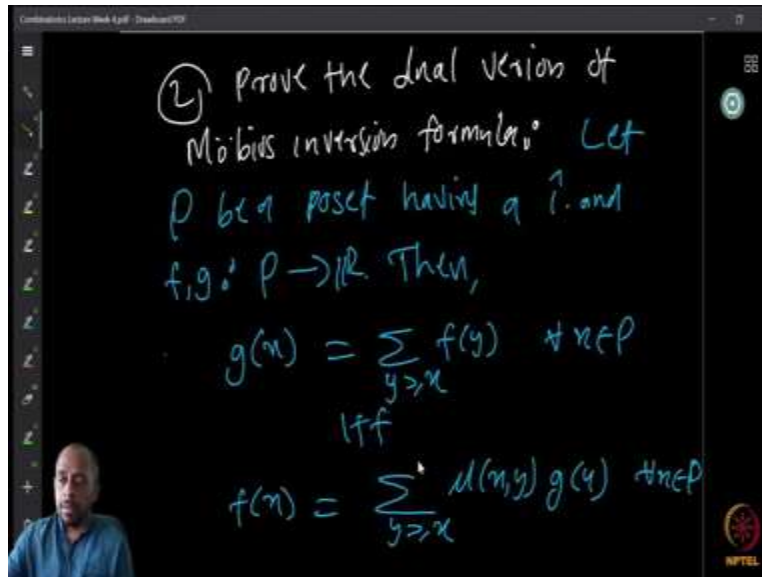 Combinatorics Lecture Week 4.pdf - Drawboard PDF
② Prove the dual version of
Möbius inversion formula: Let
P be a poset having a 1̂. and
f,g: P → ℝ. Then,
g(x) = ∑_{y≥x} f(y) ∀ x∈P
iff
f(x) = ∑_{y≥x} μ(x,y) g(y) ∀x∈P
NPTEL